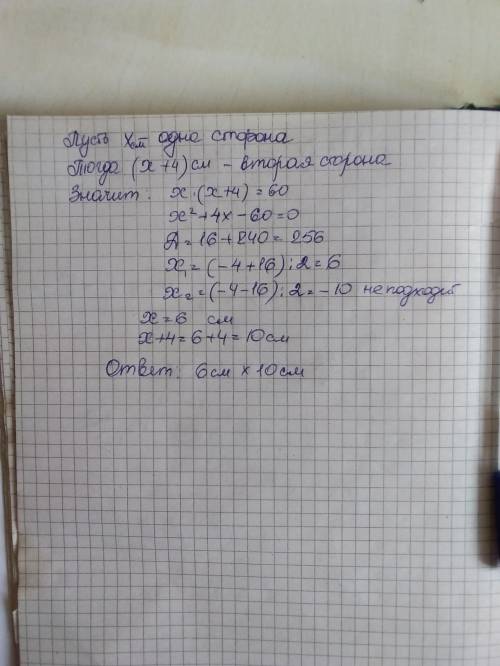 Пусть x см - одна сторона
Тогда (x+4) см - вторая сторона
Значит: x·(x+4)=60
x²+4x-60=0
Д=16+240=256
x₁=(-4+16):2=6
x₂=(-4-16):2=-10 не подходит
x=6 см
x+4=6+4=10см
Ответ: 6см x 10см